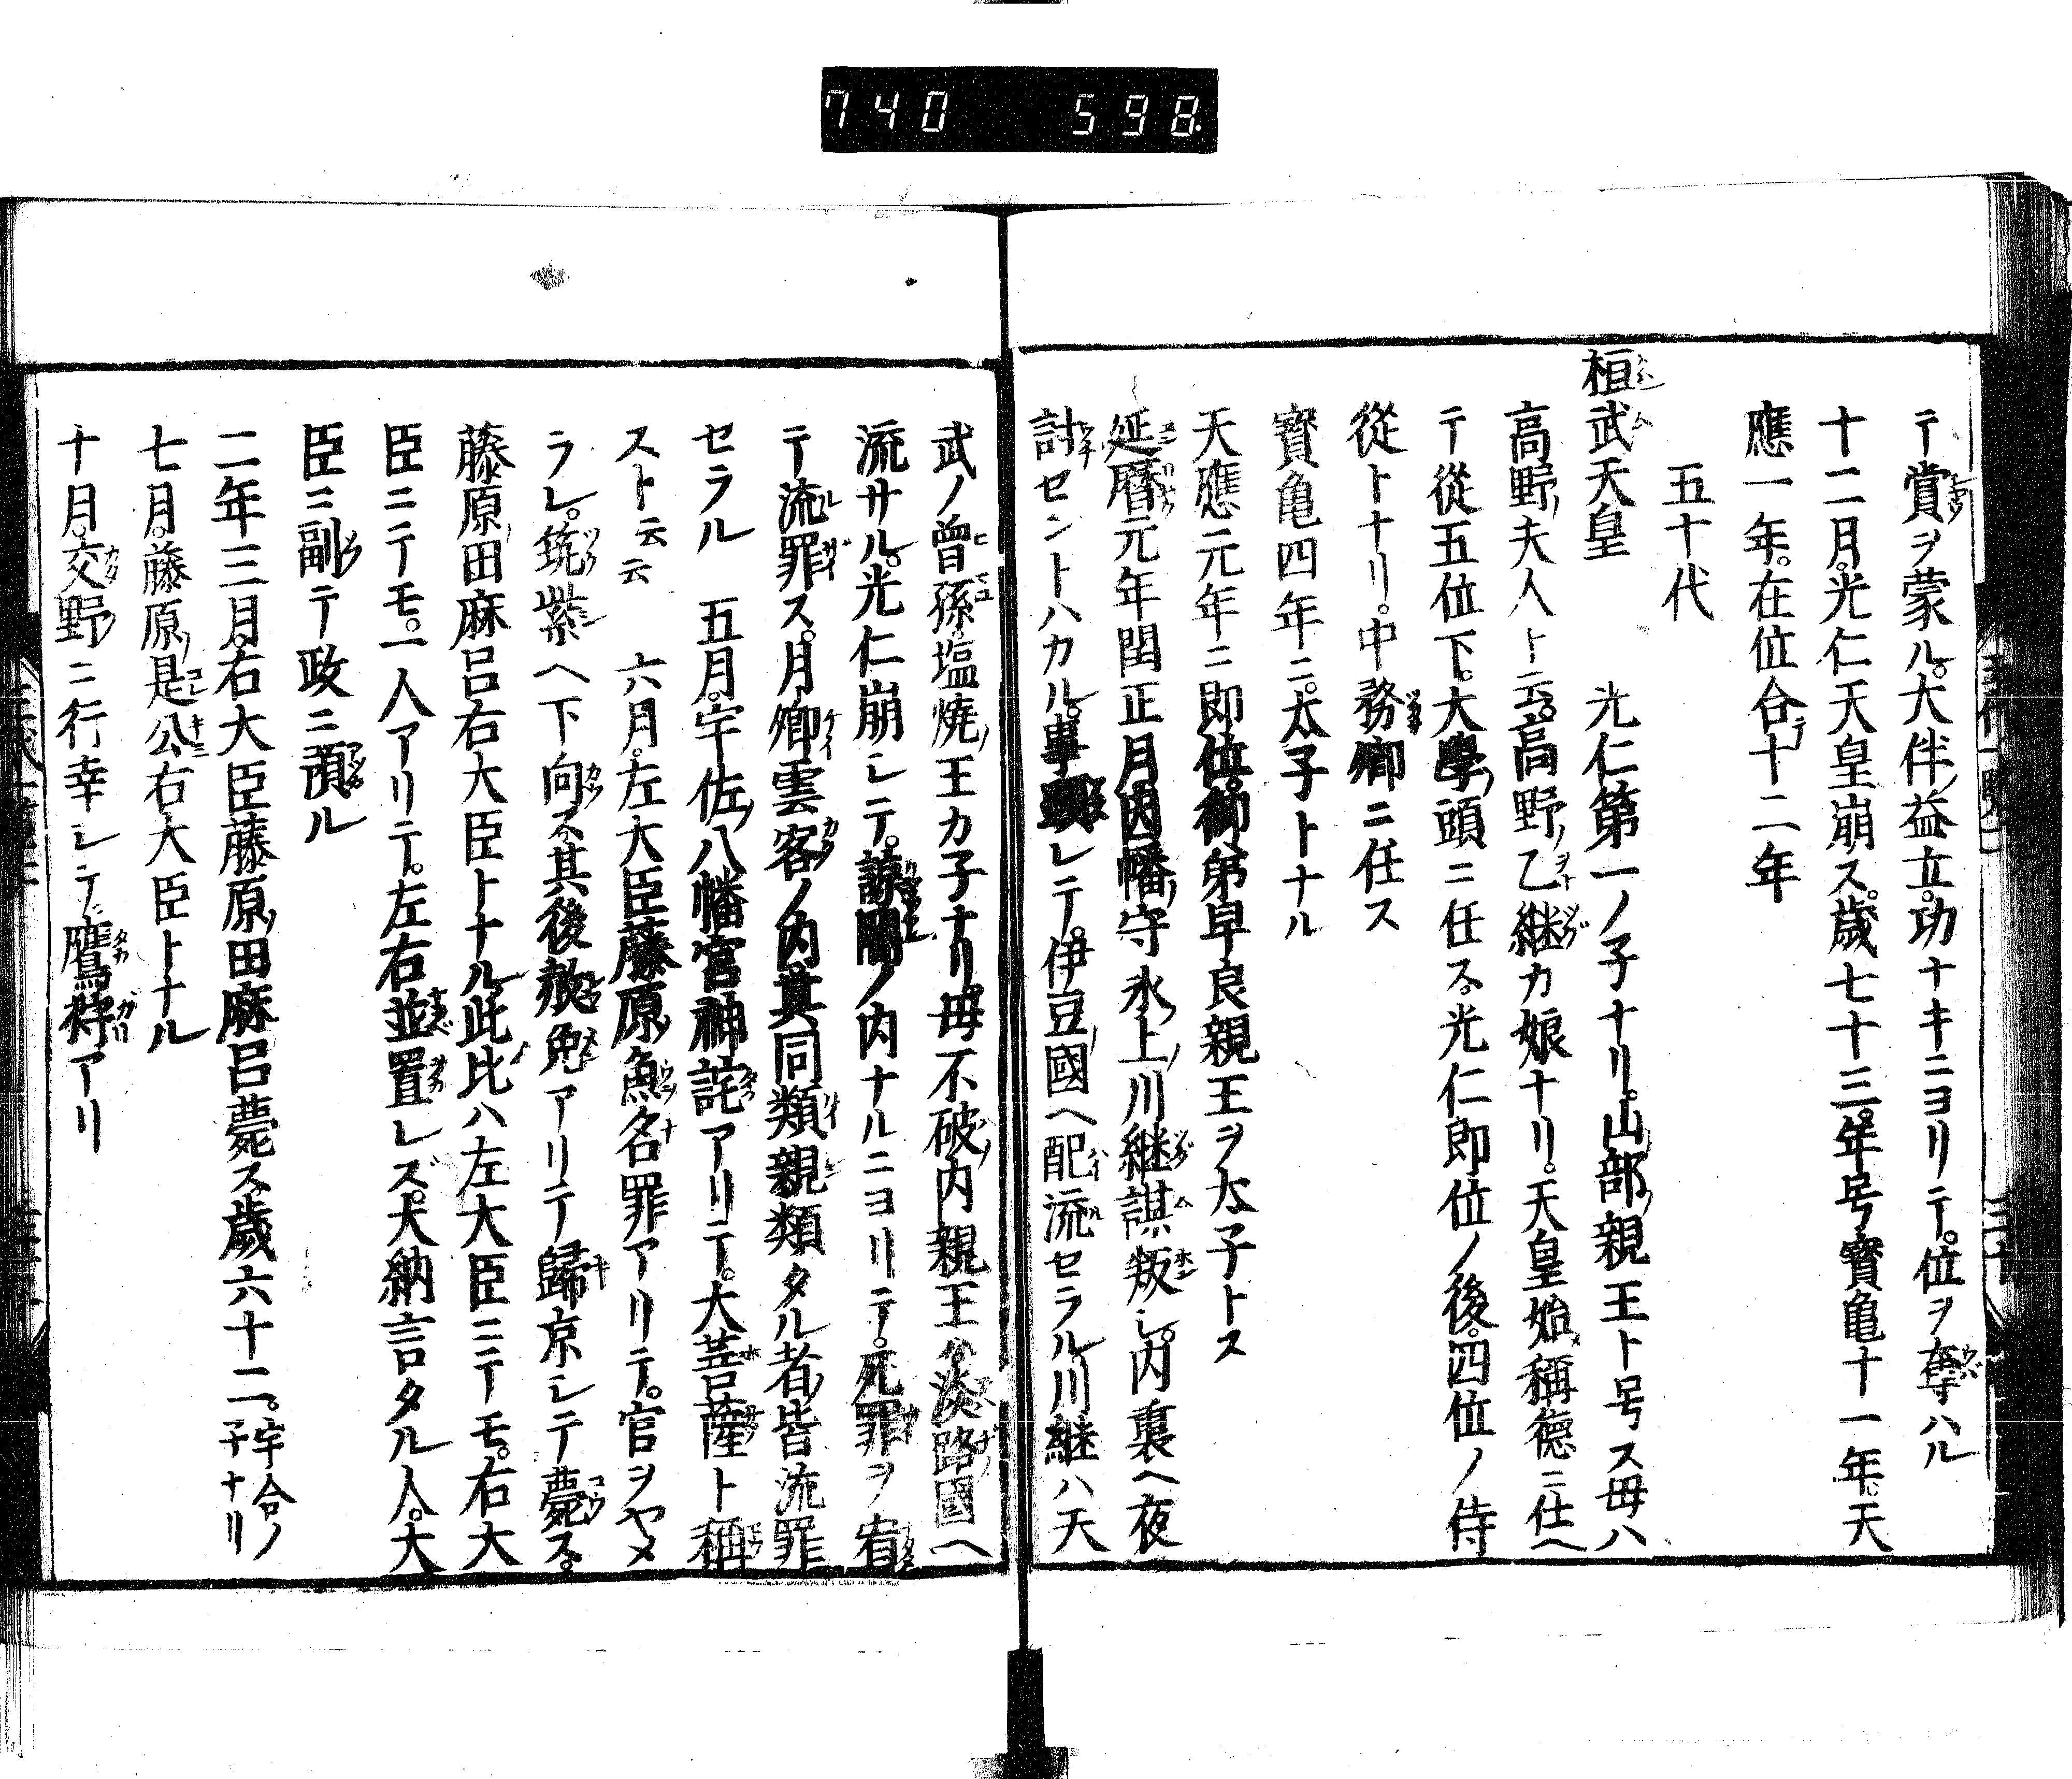 740 598.
テ賞ヲ蒙ル。大伴益立。功ナキニヨリテ。位ヲ奪ハル
十二月。光仁天皇崩ス。歳七十三。年号寳亀十一年。天
應一年。在位合十二年
五十代
桓武天皇 光仁第一ノ子ナリ。山部親王ト号ス母ハ
高野夫人ト云。高野乙継カ娘ナリ。天皇始稱德ニ仕ヘ
テ從五位下。大學頭ニ任ス。光仁即位ノ後。四位ノ侍
從トナリ。中務卿ニ任ス
寳亀四年ニ。太子トナル
天應元年ニ即位。御弟早良親王ヲ太子トス
延曆元年閏正月。因幡守氷上川継謀叛シ。内裏ヘ夜
討セントハカル。事顯レテ。伊豆國ヘ配流セラル川継ハ天
武ノ曾孫。塩焼王カ子ナリ。母不破内親王ハ。淡路國ヘ
流サル。光仁崩レテ。諒闇ノ内ナルニヨリテ。死罪ヲ宥
テ流罪ス。月卿雲客ノ内。其同類親類タル者皆流罪
セラル 五月。宇佐八幡宮神託アリテ。大菩薩ト稱
スト云云 六月。左大臣藤原魚名罪アリテ。官ヲヤメ
ラレ。筑紫ヘ下向ス。其後赦免アリテ歸京レテ薨ス。
藤原田麻呂右大臣トナル。此比ハ左大臣ニテモ。右大
臣ニテモ。一人アリテ。左右並置レズ。大納言タル人。大
臣ニ副テ政ニ預ル
二年三月。右大臣藤原田麻呂薨ス。歳六十二。宇合ノ子ナリ
七月。藤原是公右大臣トナル
十月。交野ニ行幸レテ。鷹狩アリ